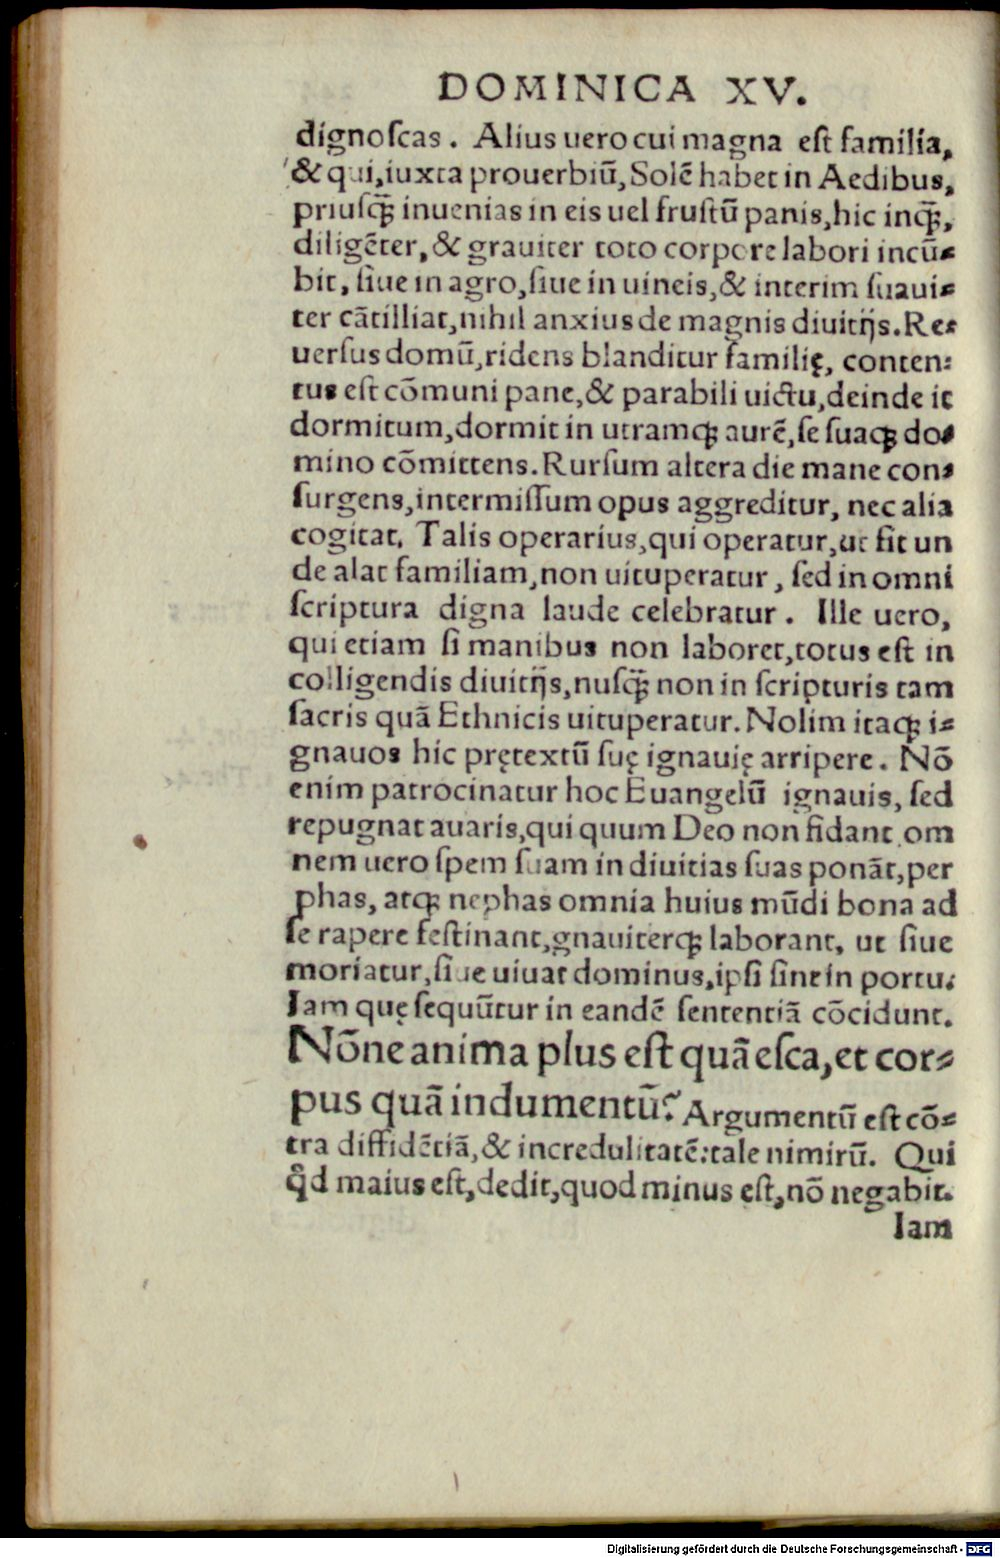 DOMINICA XV.
dignoſcas. Alius uero cui magna eſt familia,
& qui, iuxta prouerbiũ, Solẽ habet in Aedibus,
priuſꝗ̃ inuenias in eis uel fruſtũ panis, hic inꝗ̃,
diligẽter, & grauiter toto corpore labori incũ⸗
bit, ſiue in agro, ſiue in uineis, & interim ſuaui⸗
ter cãtilliat, nihil anxius de magnis diuitijs. Re⸗
uerſus domũ, ridens blanditur familię, conten⸗
tus eſt cõmuni pane, & parabili uictu, deinde it
dormitum, dormit in utramqꝫ aurẽ, ſe ſuaqꝫ do⸗
mino cõmittens. Rurſum altera die mane con⸗
ſurgens, intermiſſum opus aggreditur, nec alia
cogitat. Talis operarius, qui operatur, ut ſit un
de alat familiam, non uituperatur, ſed in omni
ſcriptura digna laude celebratur. Ille uero,
qui etiam ſi manibus non laboret, totus eſt in
colligendis diuitijs, nuſꝗ̃ non in ſcripturis tam
ſacris quã Ethnicis uituperatur. Nolim itaqꝫ i⸗
gnauos hic prętextũ ſuę ignauię arripere. Nõ
enim patrocinatur hoc Euangelũ ignauis, ſed
repugnat auaris, qui quum Deo non fidant om
nem uero ſpem ſuam in diuitias ſuas ponãt, per
phas, atqꝫ nephas omnia huius mũdi bona ad
ſe rapere feſtinant, gnauiterqꝫ laborant, ut ſiue
moriatur, ſiue uiuat dominus, ipſi ſint in portu.
Iam quę ſequũtur in eandẽ ſententiã cõcidunt.
Nõne anima plus eſt quã eſca, et cor⸗
pus quã indumentũ? Argumentũ eſt cõ⸗
tra diffidẽtiã, & incredulitatẽ: tale nimirũ. Qui
qd̾ maius eſt, dedit, quod minus eſt, nõ negabit.
Iam
Digitalisierung gefördert durch die Deutsche Forschungsgemeinschaft - DFG